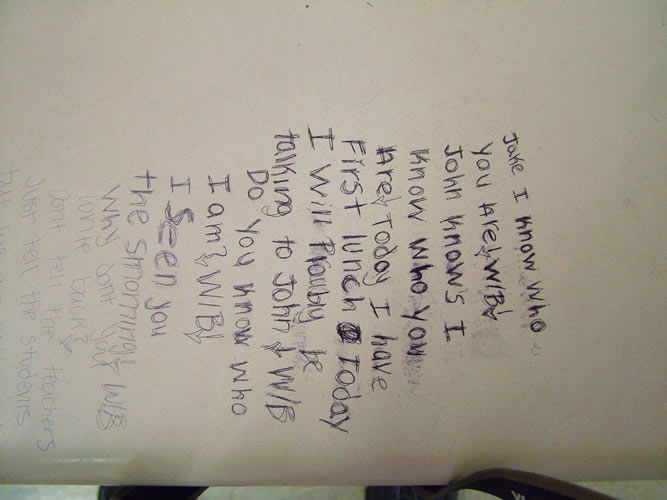 Jake I know who
you Are! W/B!
John know's I
know who you
Are! Today I have
First lunch Today
I will Prouby be
talking to John! W/B
Do you know who
I am? W/B!
I Seen you
the smorning! W/B
Why don't you
write back?
Dont tell the teachers
Just tell the students